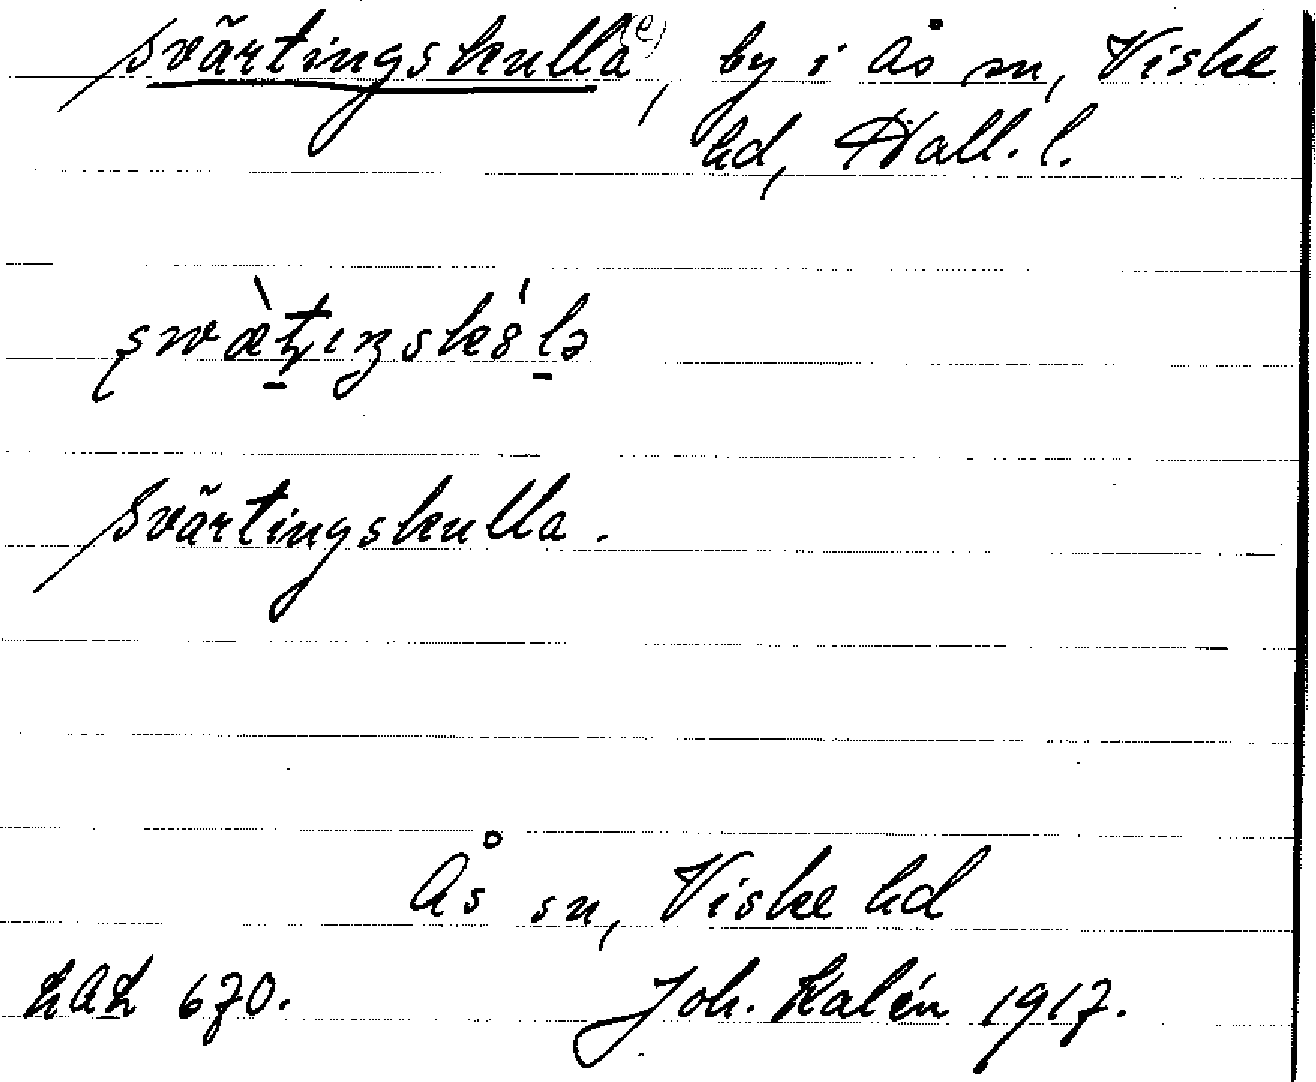 Svärtingskulla(e), by i Ås sn, Viske
hd, Hall. l.
Svärtingskulla.
Ås sn, Viske hd
LAL 670.
Joh. Kalén 1917.